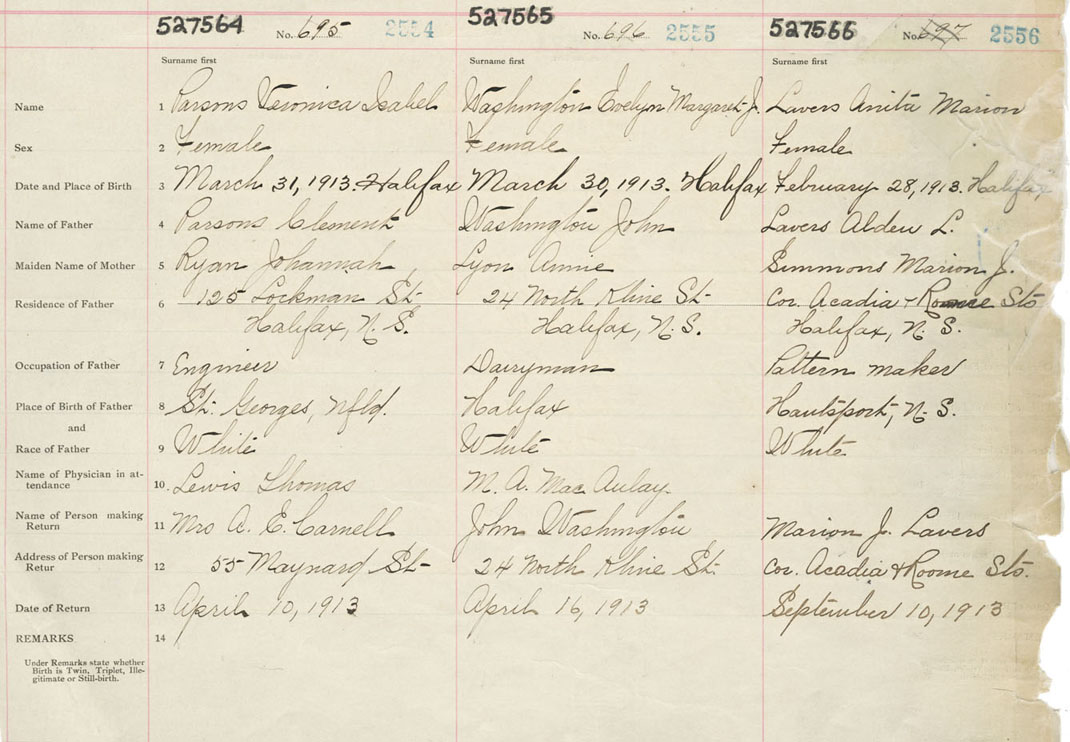 527564 No. 695 2554 527565 No. 696 2555 527566 No. 697 2556
Surname first Surname first Surname first
Name 1 Parsons Veronica Isabel Washington Evelyn Margaret J. Lavers Anita Marion
Sex 2 Female Female Female
Date and Place of Birth 3 March 31, 1913. Halifax March 30, 1913. Halifax February 28, 1913. Halifax
Name of Father 4 Parsons Clement Washington John Lavers Alden L.
Maiden Name of Mother 5 Ryan Johannah, Lyon Annie Simmons Marion J.
Residence of Father 6 125 Lockman St. 24 North Kline St. Cor. Acadia & Roome Sts
Halifax, N. S. Halifax, N. S. Halifax, N. S.
Occupation of Father 7 Engineer Dairyman Pattern maker
Place of Birth of Father 8 St. Georges, Nfld. Halifax Hantsport, N. S.
and
Race of Father 9 White White White
Name of Physician in at-
tendance 10. Lewis Thomas M. A. MacAulay.
Name of Person making
Return 11 Mrs A. E. Carnell John Washington Marion J. Lavers
Address of Person making
Retur 12 55 Maynard St. 24 North Kline St. Cor. Acadia & Roome Sts.
Date of Return 13 April 10, 1913 April 16, 1913 September 10, 1913
REMARKS 14
Under Remarks state whether
Birth is Twin, Triplet, Ille-
gitimate or Still-birth.